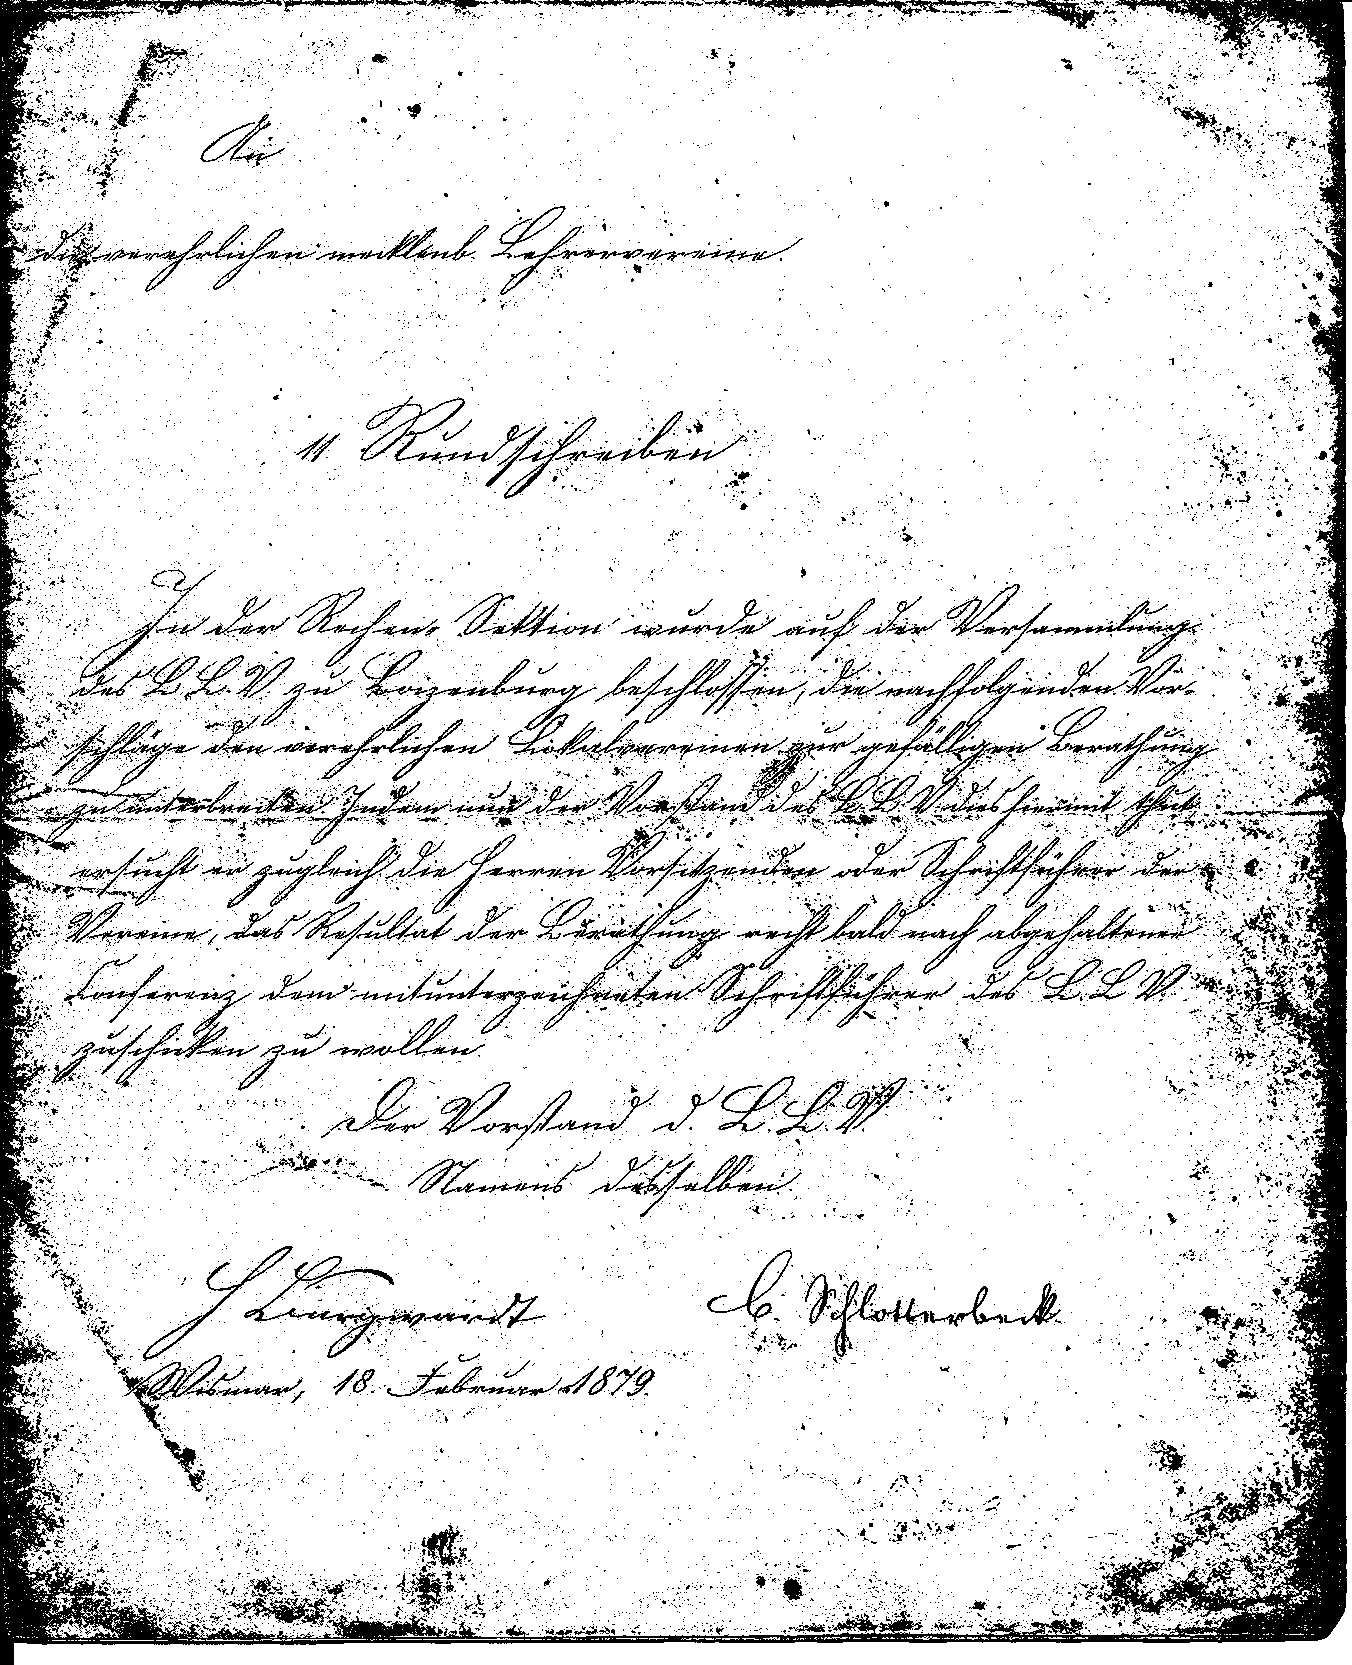 An
die verehrlichen mecklenb. Lehrervereine.
11 Rundschreiben
In der Rechen-Sektion wurde auf der Versammlung
des L. L. V. zu Boizenburg beschlossen, die nachfolgenden Vor-
schläge den verehrlichen Lokalvereinen zur gefälligen Berathung
zu unterbreiten Indem nun der Vorstand des L. L. V. dies hiermit thut
ersucht er zugleich die Herren Vorsitzenden oder Schriftführer der
Vereine, das Resultat der Berathung recht bald nach abgehaltener
Conferenz dem mitunterzeichneten Schriftführer des L. L. V.
zuschicken zu wollen.
Der Vorstand d. L. L. V.
Namens desselben
H Burgwardt C. Schlotterbeck.
Wismar, 18. Februar 1879.